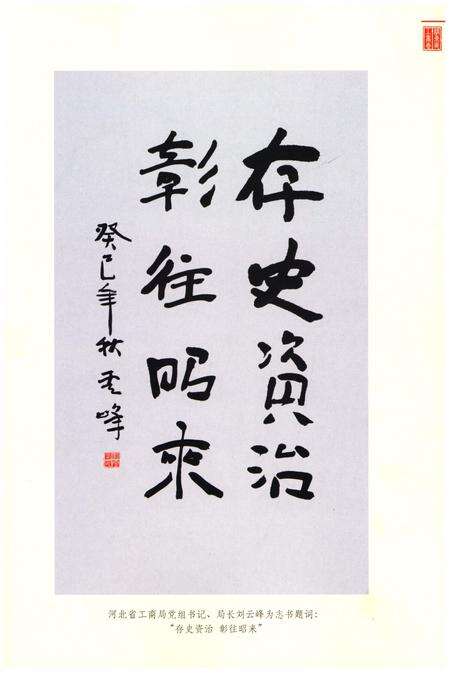 存史資治
彰往昭來
癸巳年秋云峰
河北省工商局党组书记、局长刘云峰为志书题词：
“存史资治 彰往昭来”